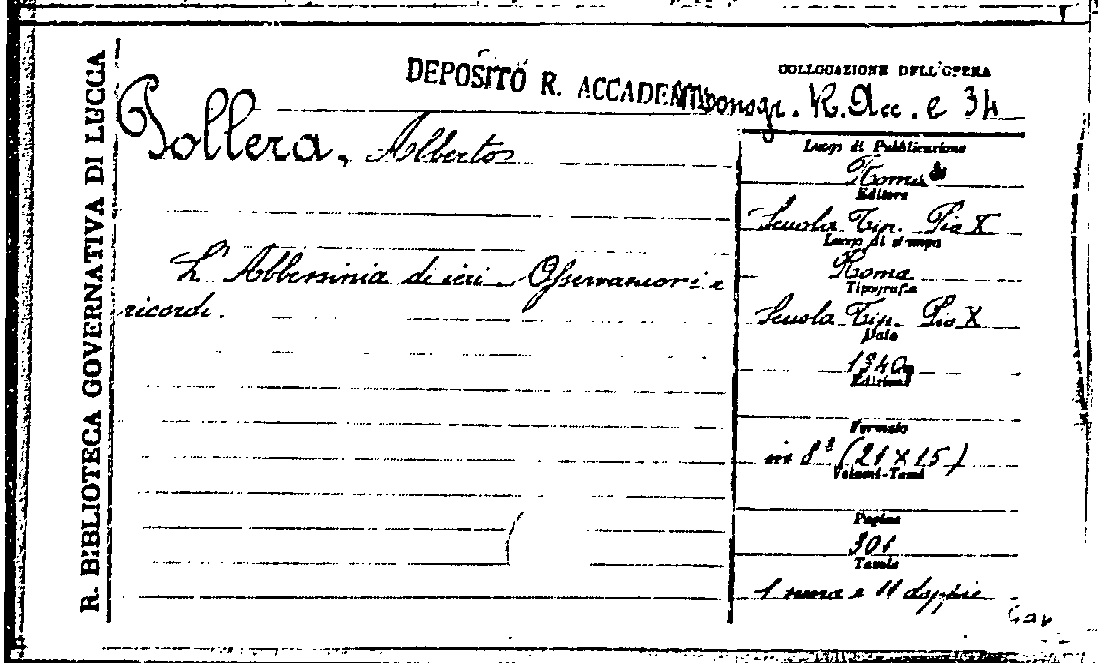 R. BIBLIOTECA GOVERNATIVA DI LUCCA
DEPOSITO R. ACCADEM
COLLOCAZIONE DELL'OPERA
Monogr. R. Acc. e 34
Pollera, Alberto
L'Abbessinia di ieri. Osservazioni e
ricordi.
Luogo di Pubblicazione
Roma
Editore
Scuola Tip. Pio X
Luogo di stampa
Roma
Tipografia
Scuola Tip. Pio X
Data
1940
Edizione
Formato
in 8° (21 X 15)
Volumi-Tomi
Pagine
301
Tavole
1 e 11 doppie